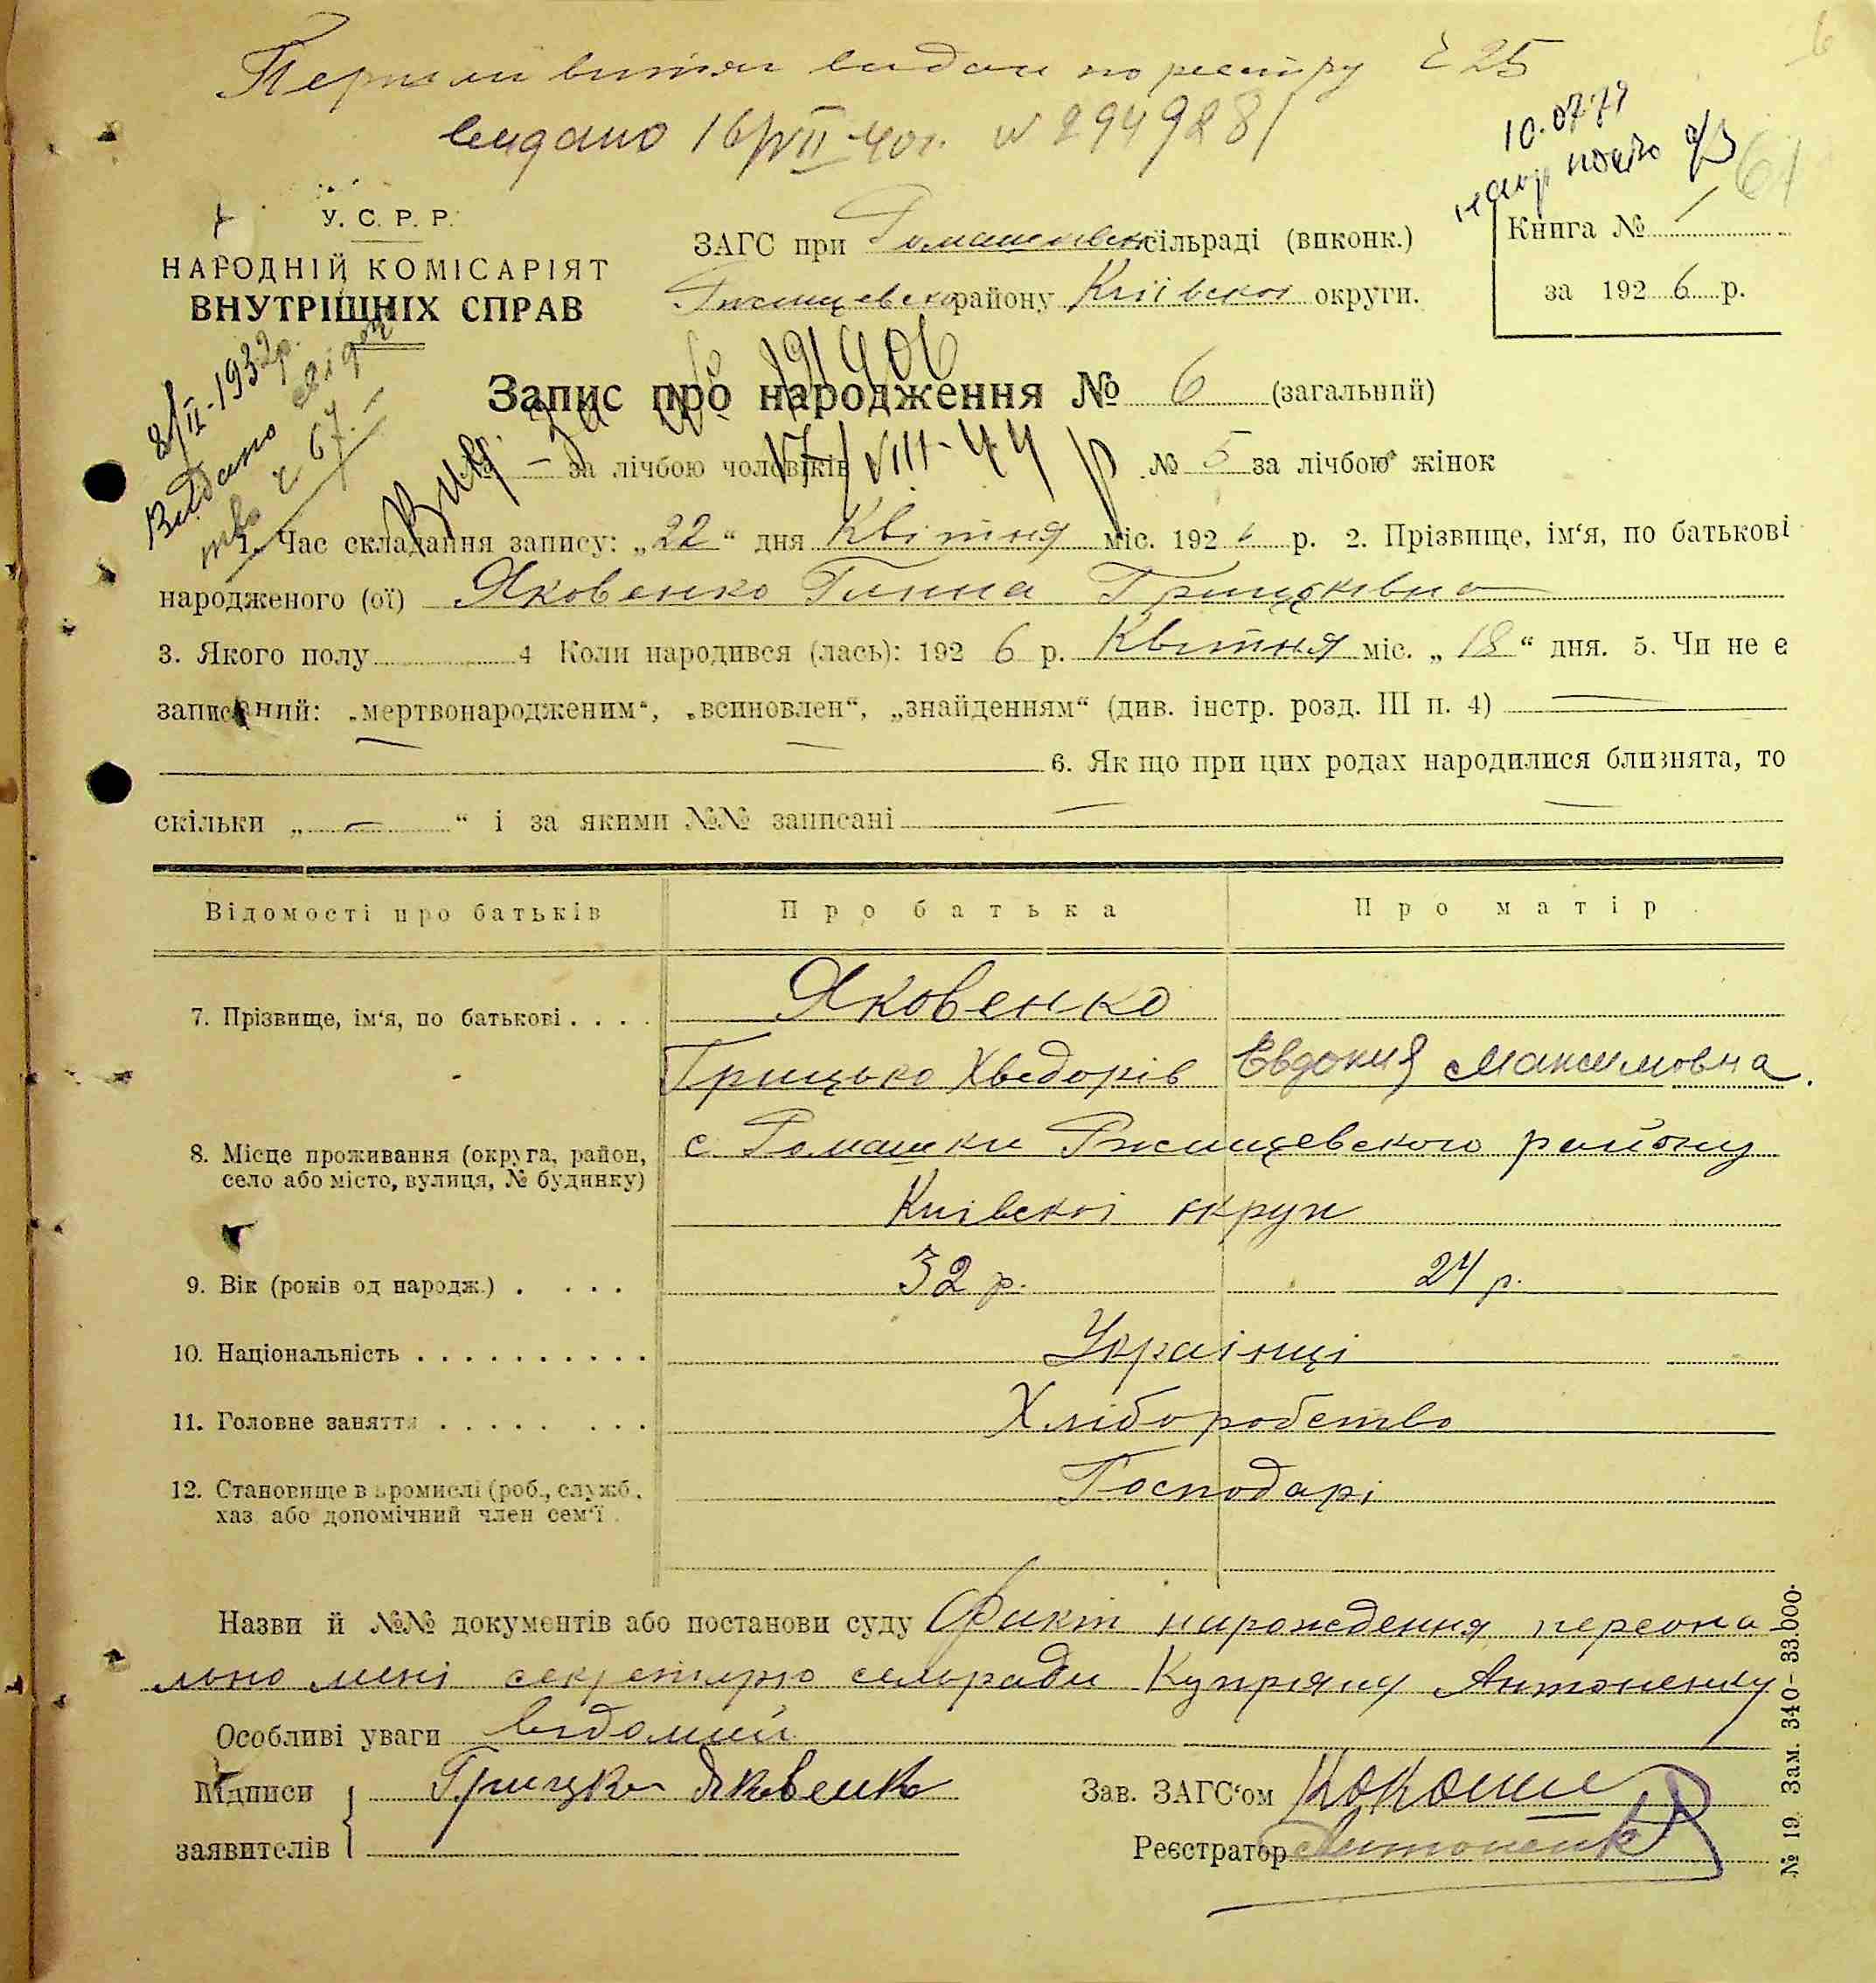 витяг видан по реєстру № 25
видано 16/VII-40г. № 294928
10.0779
61
У. С. Р. Р.
НАРОДНІЙ КОМІСАРІЯТ
ВНУТРІШНІХ СПРАВ
ЗАГС при Ромашківській сільраді (виконк.)
Ржищевского району Київскоі округи.
Книга № 1
за 1926 р.
8/II-1932р.
Видано
№ 67
Запис про народження № 6 (загальний)
Вид. 17/VIII-44 р
№ — за лічбою чоловіків № 5 за лічбою жінок
1. Час складання запису: „22“ дня Квітня міс. 1926 р. 2. Прізвище, ім‘я, по батькові
народженого (ої) Яковенко Ганна Грицьківна
3. Якого полу 4 Коли народився (лась): 1926 р. Квітня міс. „18“ дня. 5. Чи не є
записаний: „мертвонародженим“, „всиновлен“, „знайденням“ (див. інстр. розд. III п. 4) —
— — 6. Як що при цих родах народилися близнята, то
скільки „ — “ і за якими №№ записані — —
Відомості про батьків Про батька Про матір
7. Прізвище, ім‘я, по батькові . . . . Яковенко
Грицько Хведорів Евдокия Максимовна.
8. Місце проживання (округа, район, село або місто, вулиця, № будинку) с. Ромашки Ржищевского району
Київскоі округи
9. Вік (років од народж.) . . . . 32 р. 24 р.
10. Національність . . . . . . . . . . Украінці
11. Головне заняття . . . . . . . . Хліборобство
12. Становище в промислі (роб., служб., Господарі
хаз. або допомічний член сем‘ї.
Назви й №№ документів або постанови суду Факт нарождения персона
льно мені секретарю сельради Купріяну Антоненку
Особливі уваги відомий
Підписи Грицько Яковенко Зав. ЗАГС‘ом
заявителів Реєстратор Антоненко
№ 19. Зам. 340–33.000.